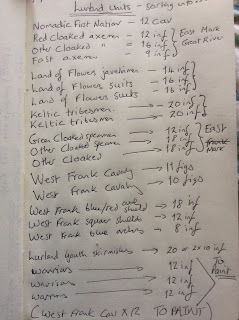 Lurland Units - Sorting into
Nomadic First Nation - 12 Cav
Red Cloaked axemen - 12 inf } East Mark
Other Cloaked " = 16 inf } Great River
Fast axemen - 9 inf
Land of Flowers javelinmen - 16 inf
Land of Flowers Suits - 16 inf
Land of Flowers Suits - 16 inf
Keltic tribesmen - 20 inf
Keltic tribesmen - 20 inf
Green Cloaked Spearmen - 12 inf } East
Other Cloaked Spearmen 18 inf } Frank
Other Cloaked 18 inf Mark
West Frank Cavalry → 11 figs
West Frank Cavalry → 10 figs
West Frank blue/red shield → 18 inf
West Frank square shields → 12 inf
West Frank blue archers → 8 inf
Lurland youth skirmishers → 20 or 2x10 inf
Warriors → 12 inf
Warriors → 12 inf
Warriors → 12 inf
To Paint
(West Frank Cav X12 TO PAINT)